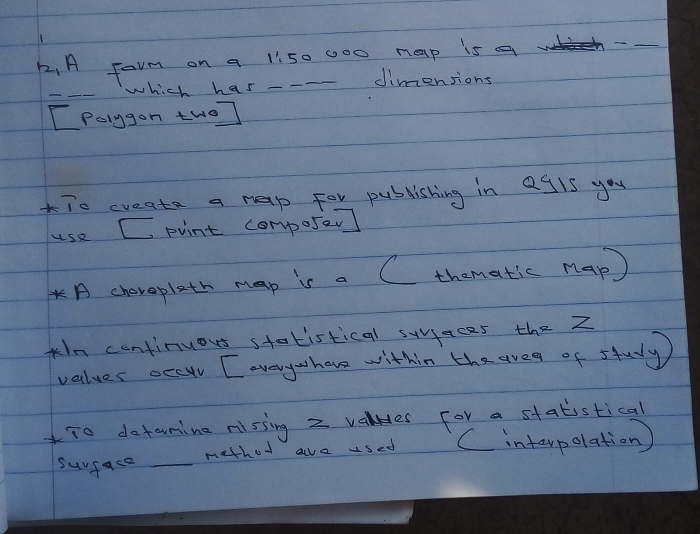 1
12, A farm on a 1:50 000 map is a which -- --
-- -- which has ---- dimensions
[Polygon two]
* To create a map for publishing in QGIS you
use [print composer]
* A choropleth map is a (thematic map)
* In continuous statistical surfaces the Z
values occur [everywhere within the area of study)
* To determine missing z values for a statistical
surface ___ method are used (interpolation)